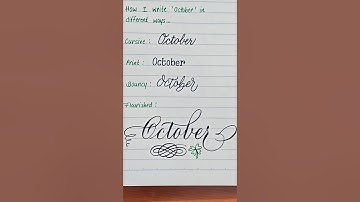 How I write 'October' in
different ways...
Cursive: October
Print: October
Bouncy: October
Flourished:
October